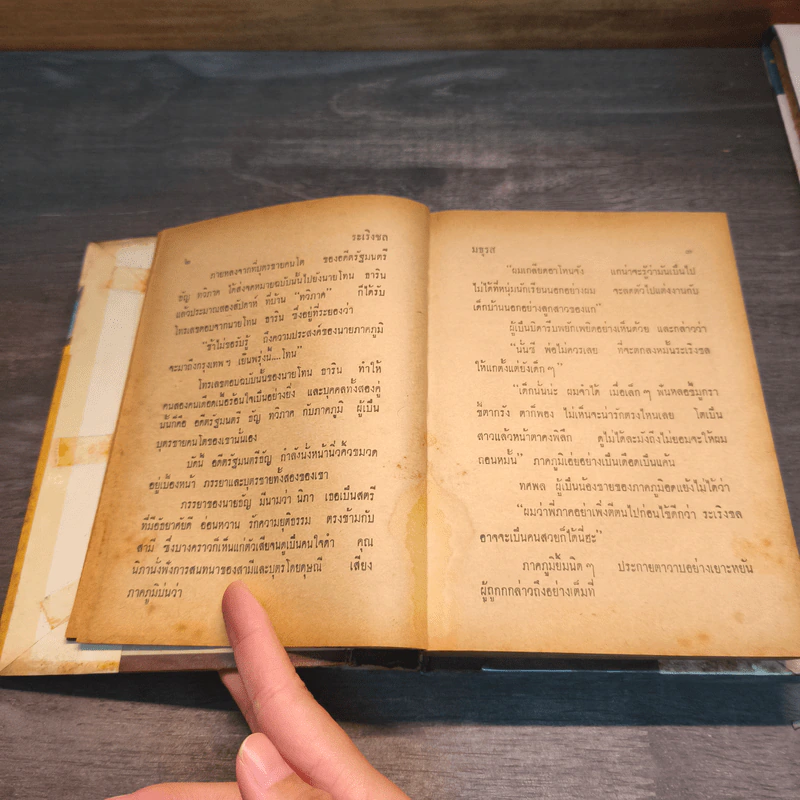 ๒
ระเริงชล
ภายหลังจากที่บุตรชายคนโต ของอดีตรัฐมนตรี
ธัญ ทวิภาค ได้ส่งจดหมายฉบับนั้นไปยังนายโทน ธาริน
แล้วประมาณสองสัปดาห์ ที่บ้าน “ทวิภาค” ก็ได้รับ
โทรเลขตอบจากนายโทน ธาริน ซึ่งอยู่ที่ระยองว่า
“ข้าไม่ขอรับรู้ ถึงความประสงค์ของนายภาคภูมิ
จะมาถึงกรุงเทพฯ เย็นพรุ่งนี้....โทน”
โทรเลขตอบฉบับนั้นของนายโทน ธาริน ทำให้
คนสองคนเดือดเนื้อร้อนใจเป็นอย่างยิ่ง และบุคคลทั้งสองคู่
นั้นก็คือ อดีตรัฐมนตรี ธัญ ทวิภาค กับภาคภูมิ ผู้เป็น
บุตรชายคนโตของเขานั่นเอง
บัดนี้ อดีตรัฐมนตรีธัญ กำลังนั่งหน้านิ่วคิ้วขมวด
อยู่เบื้องหน้า ภรรยาและบุตรชายทั้งสองของเขา
ภรรยาของนายธัญ มีนามว่า นิภา เธอเป็นสตรี
ที่มีอัธยาศัยดี อ่อนหวาน รักความยุติธรรม ตรงข้ามกับ
สามี ซึ่งบางคราวก็เห็นแก่ตัวเสียจนดูเป็นคนใจดำ คุณ
นิภานั่งฟังการสนทนาของสามีและบุตรโดยดุษณี เสียง
ภาคภูมิบ่นว่า
มธุรส
๓
“ผมเกลียดอาโทนจัง แกน่าจะรู้ว่ามันเป็นไป
ไม่ได้ที่หนุ่มนักเรียนนอกอย่างผม จะลดตัวไปแต่งงานกับ
เด็กบ้านนอกอย่างลูกสาวของแก”
ผู้เป็นบิดารีบพยักเพยิดอย่างเห็นด้วย และกล่าวว่า
“นั่นซี พ่อไม่ควรเลย ที่จะตกลงหมั้นระเริงชล
ให้แกตั้งแต่ยังเด็กๆ”
“เด็กนั่นน่ะ ผมจำได้ เมื่อเล็กๆ ฟันหลอขี้มูกรา
ขี้ตากรัง ตาก็พอง ไม่เห็นจะน่ารักตรงไหนเลย โตเป็น
สาวแล้วหน้าตาคงพิลึก ดูไม่ได้ละมังถึงไม่ยอมจะให้ผม
ถอนหมั้น” ภาคภูมิเอ่ยอย่างเป็นเดือดเป็นแค้น
ทศพล ผู้เป็นน้องชายของภาคภูมิอดแย้งไม่ได้ว่า
“ผมว่าพี่ภาคอย่าเพิ่งตีตนไปก่อนไข้ดีกว่า ระเริงชล
อาจจะเป็นคนสวยก็ได้นี่ฮะ”
ภาคภูมิยิ้มนิดๆ ประกายตาวาบอย่างเยาะหยัน
ผู้ถูกกล่าวถึงอย่างเต็มที่